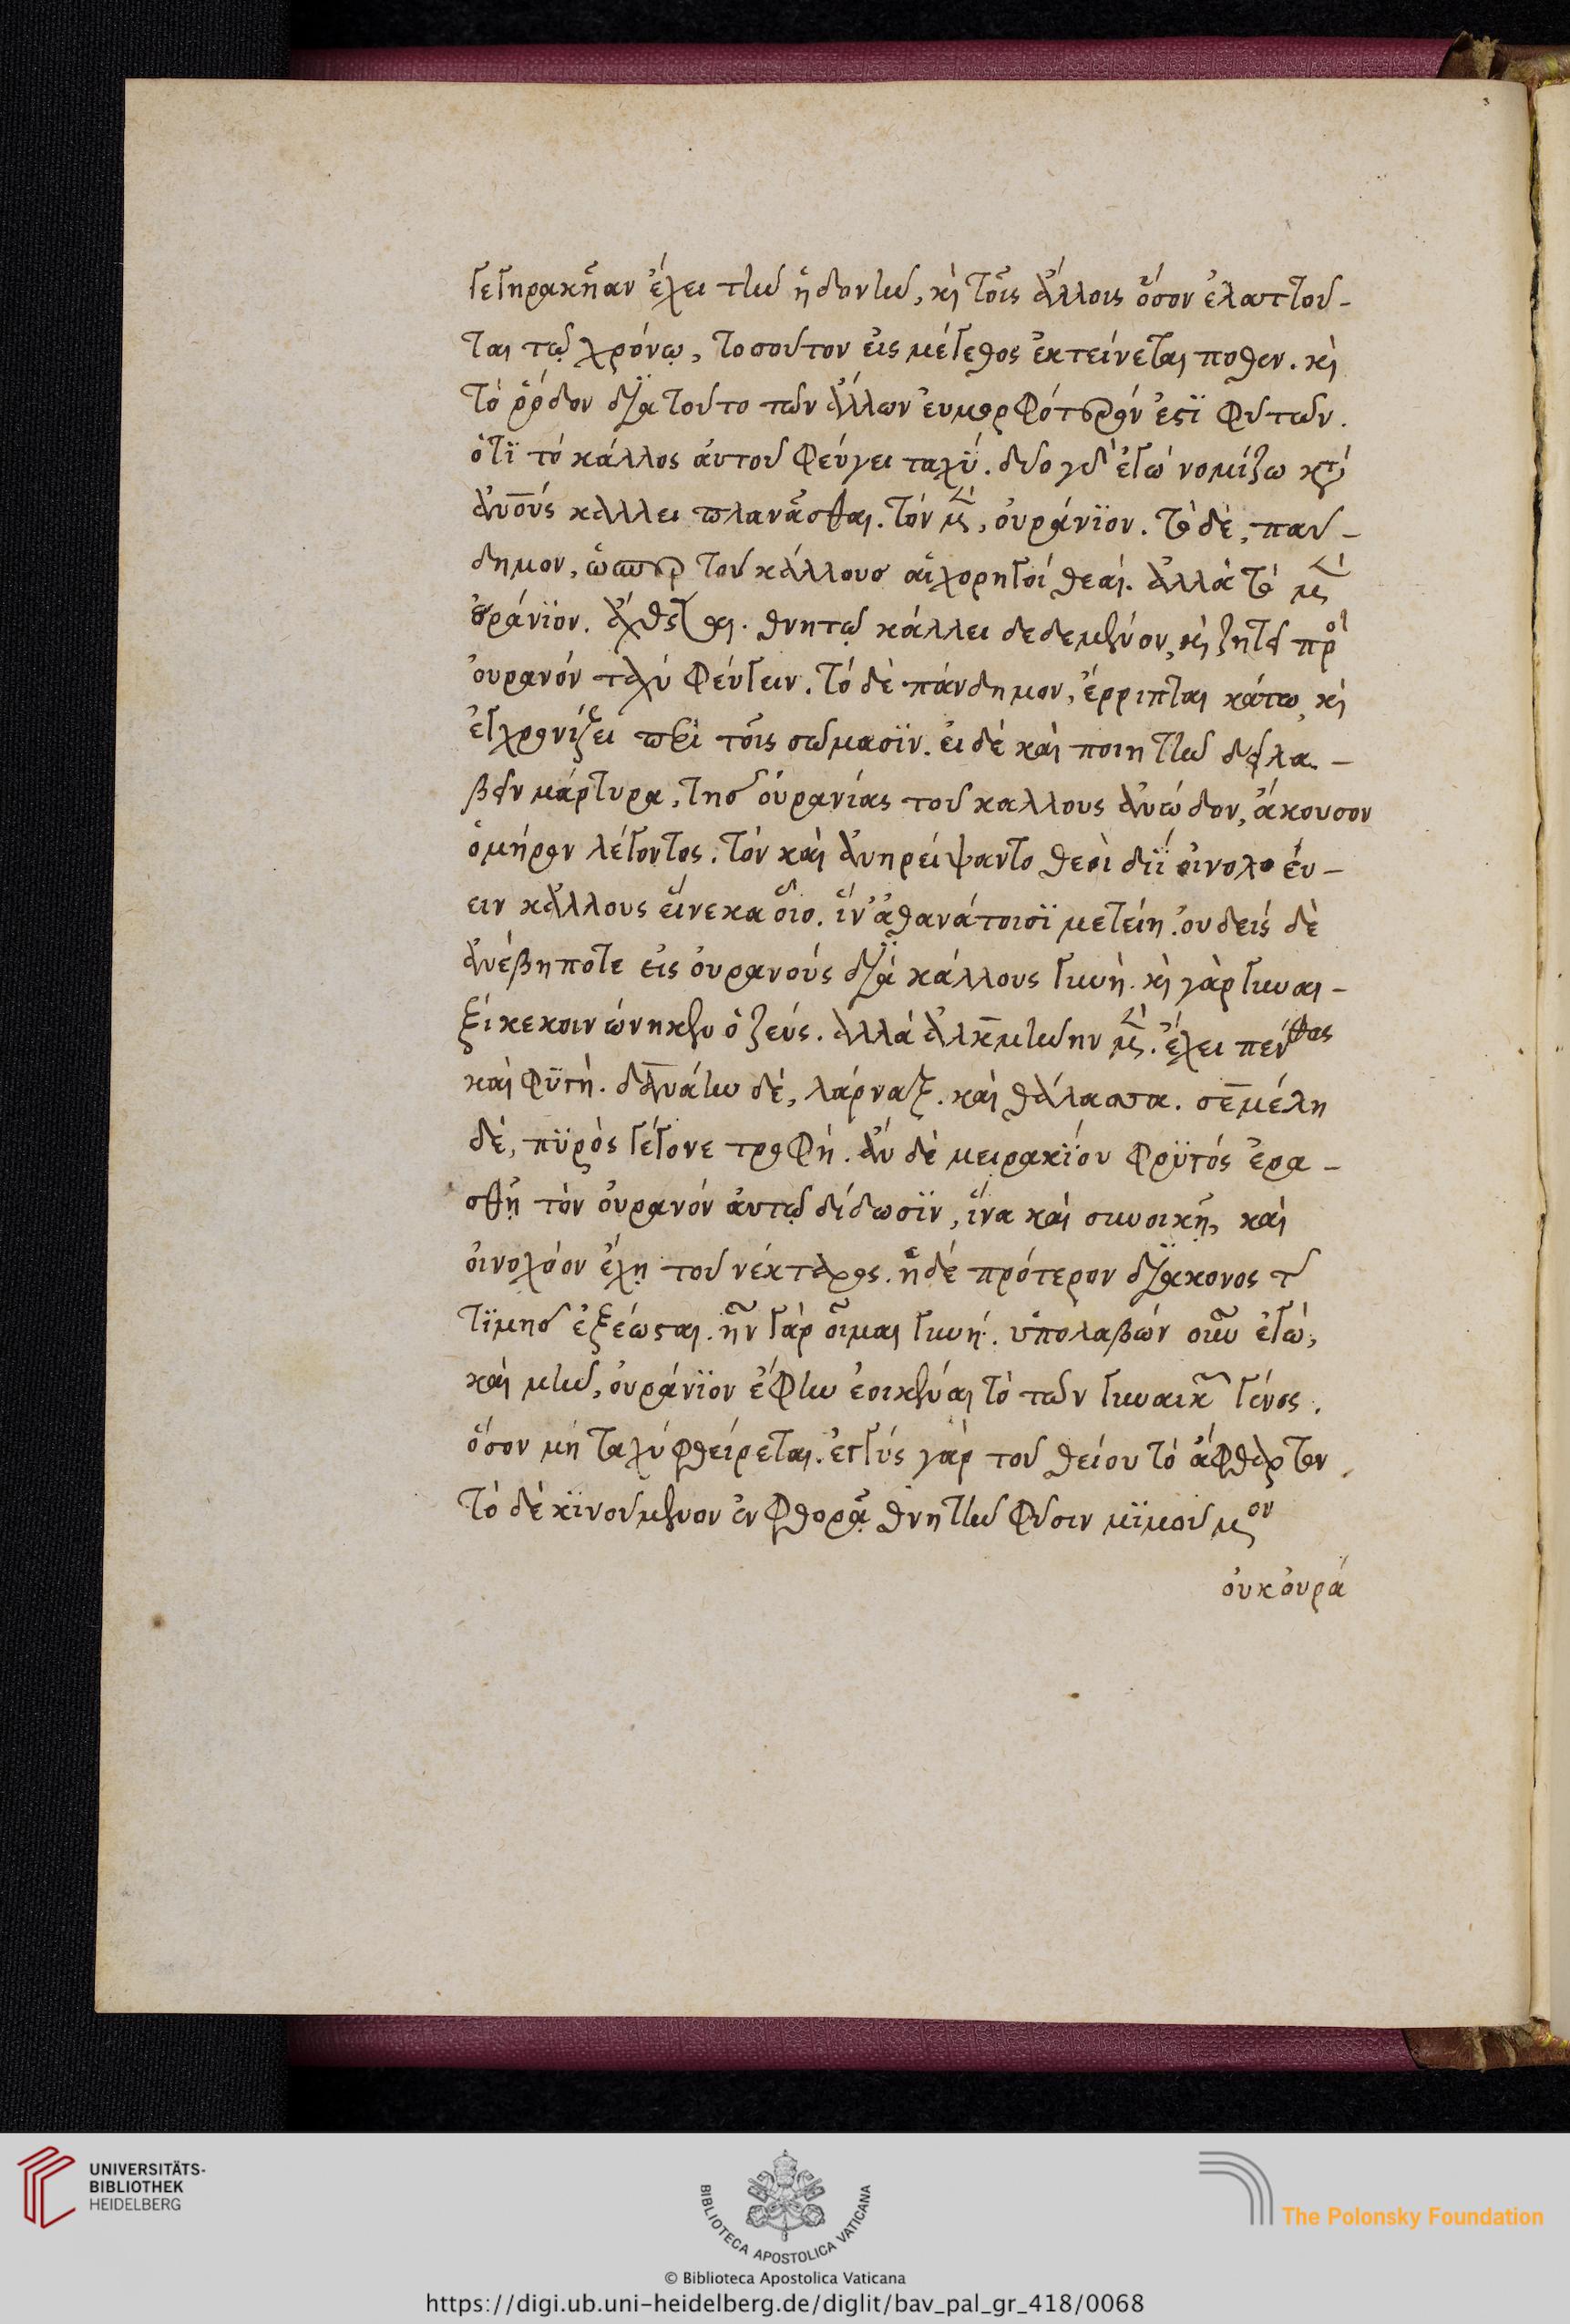 γεγηρακῆαν ἔχει τὴν ἡδονὴν, κὶ τοῖς ἄλλοις ὅσον ἐλαττοῦ-
ται τῷ χρόνῳ, τοσοῦτον εἰς μέγεθος ἐκτείνεται ποθεν. κὶ
τὸ ῥόδον διὰ τοῦτο τῶν ἄλλων ἐυμορφότερόν ἐστϊ φυτῶν.
ὅτϊ τὸ κάλλος ἀυτοῦ φεύγει ταχύ. δύο γδ ἐγὼ νομίζω κτ
ἀνούς κάλλει πλανᾶσθαι. τὸν μὲν, οὐράνϊον. τὸ δὲ, παν-
δημον, ὥσπερ τοῦ κάλλουσ αἱ χορηγοί θεαί. ἀλλὰ τὸ μὲν
οὐράνϊον. ἄχθεται. θνητῷ κάλλει δεδεμένον, κὶ ζητεῖ πρὸς
ὀυρανόν ταχύ φεύγειν. τὸ δὲ πάνδημον, ἔρριπται κάτω, κὶ
ἐγχρονίζει περὶ τοῖς σώμασϊν. ἐι δὲ καὶ ποιητὴν δεῖ λα-
βεῖν μάρτυρα, τησ οὐρανίας τοῦ καλλους ἀνώδου, ἄκουσον
ὁμήρου λέγοντος. τὸν καὶ ἀνηρείψαντο θεοὶ διΐ οἰνοχοέυ-
ειν κάλλους εἵνεκα οἷο. ἵν' ἀθανάτοισϊ μετείη. ουδεὶς δὲ
ἀνέβη ποτε εἰς ὀυρανούς διὰ κάλλους γυνή. κὶ γὰρ γυναι-
ξί κεκοινώνηκεν ὁ ζεύς. ἀλλὰ ἀλκμήνην μὲν. ἔχει πένθος
καὶ φϋγή. δανάην δὲ, λάρναξ. καὶ θάλασσα. σεμέλη
δὲ, πϋρὸς γέγονε τροφή. ἂν δὲ μειρακϊου φρϋγός ἐρα-
σθῇ τὸν ὀυρανόν ἀυτῷ δίδωσϊν, ἵνα καὶ συνοικῇ, καὶ
οἰνοχόον ἔχῃ τοῦ νέκταρος. ἡ δὲ πρότερον διάκονος τῆς
τϊμησ ἐξέωσται. ἦν γὰρ οἶμαι γυνή. ὑπολαβών οὖν ἐγώ,
καὶ μὴν, ὀυράνϊον ἔφην ἐοικέναι τὸ τῶν γυναικῶν γένος.
ὅσον μή ταχύ φθείρεται. ἐγγύς γάρ τοῦ θείου τὸ ἄφθαρτον
τὸ δὲ κϊνούμενον ἐν φθορᾷ θνητὴν φύσιν μϊμούμενον
ὀυκ ὀυρά
UNIVERSITÄTS-
BIBLIOTHEK
HEIDELBERG
BIBLIOTECA APOSTOLICA VATICANA
The Polonsky Foundation
© Biblioteca Apostolica Vaticana
https://digi.ub.uni-heidelberg.de/diglit/bav_pal_gr_418/0068